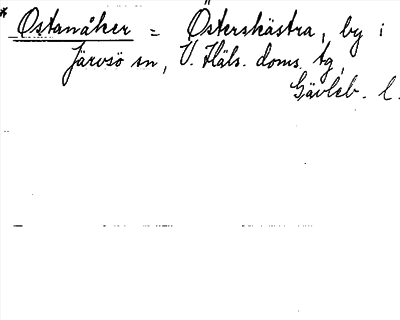 * Ostanåker = Österskästra, by i
Järvsö sn, V. Häls. doms. tg,
Gävleb. l.